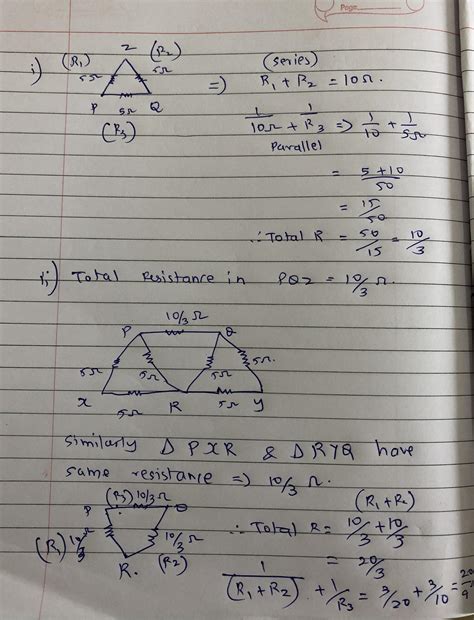 Page
i) (R1) Z (R2) (series)
5Ω 5Ω => R1 + R2 = 10Ω.
P 5Ω Q
(R3)
1/10Ω + 1/R3 => 1/10 + 1/5Ω
Parallel
= 5+10/50
= 15/50
∴ Total R = 50/15 = 10/3
ii) Total resistance in PQZ = 10/3 Ω.
10/3 Ω
P Q
5Ω 5Ω 5Ω 5Ω.
X 5Ω R 5Ω Y
similarly Δ PXR & Δ RYQ have
same resistance => 10/3 Ω.
(R3) 10/3 Ω (R1+R2)
P Q
(R1) 10/3 10/3 Ω ∴ Total R = 10/3 + 10/3
R. (R2) = 20/3
1/(R1+R2) + 1/R3 = 3/20 + 3/10 = 20/9